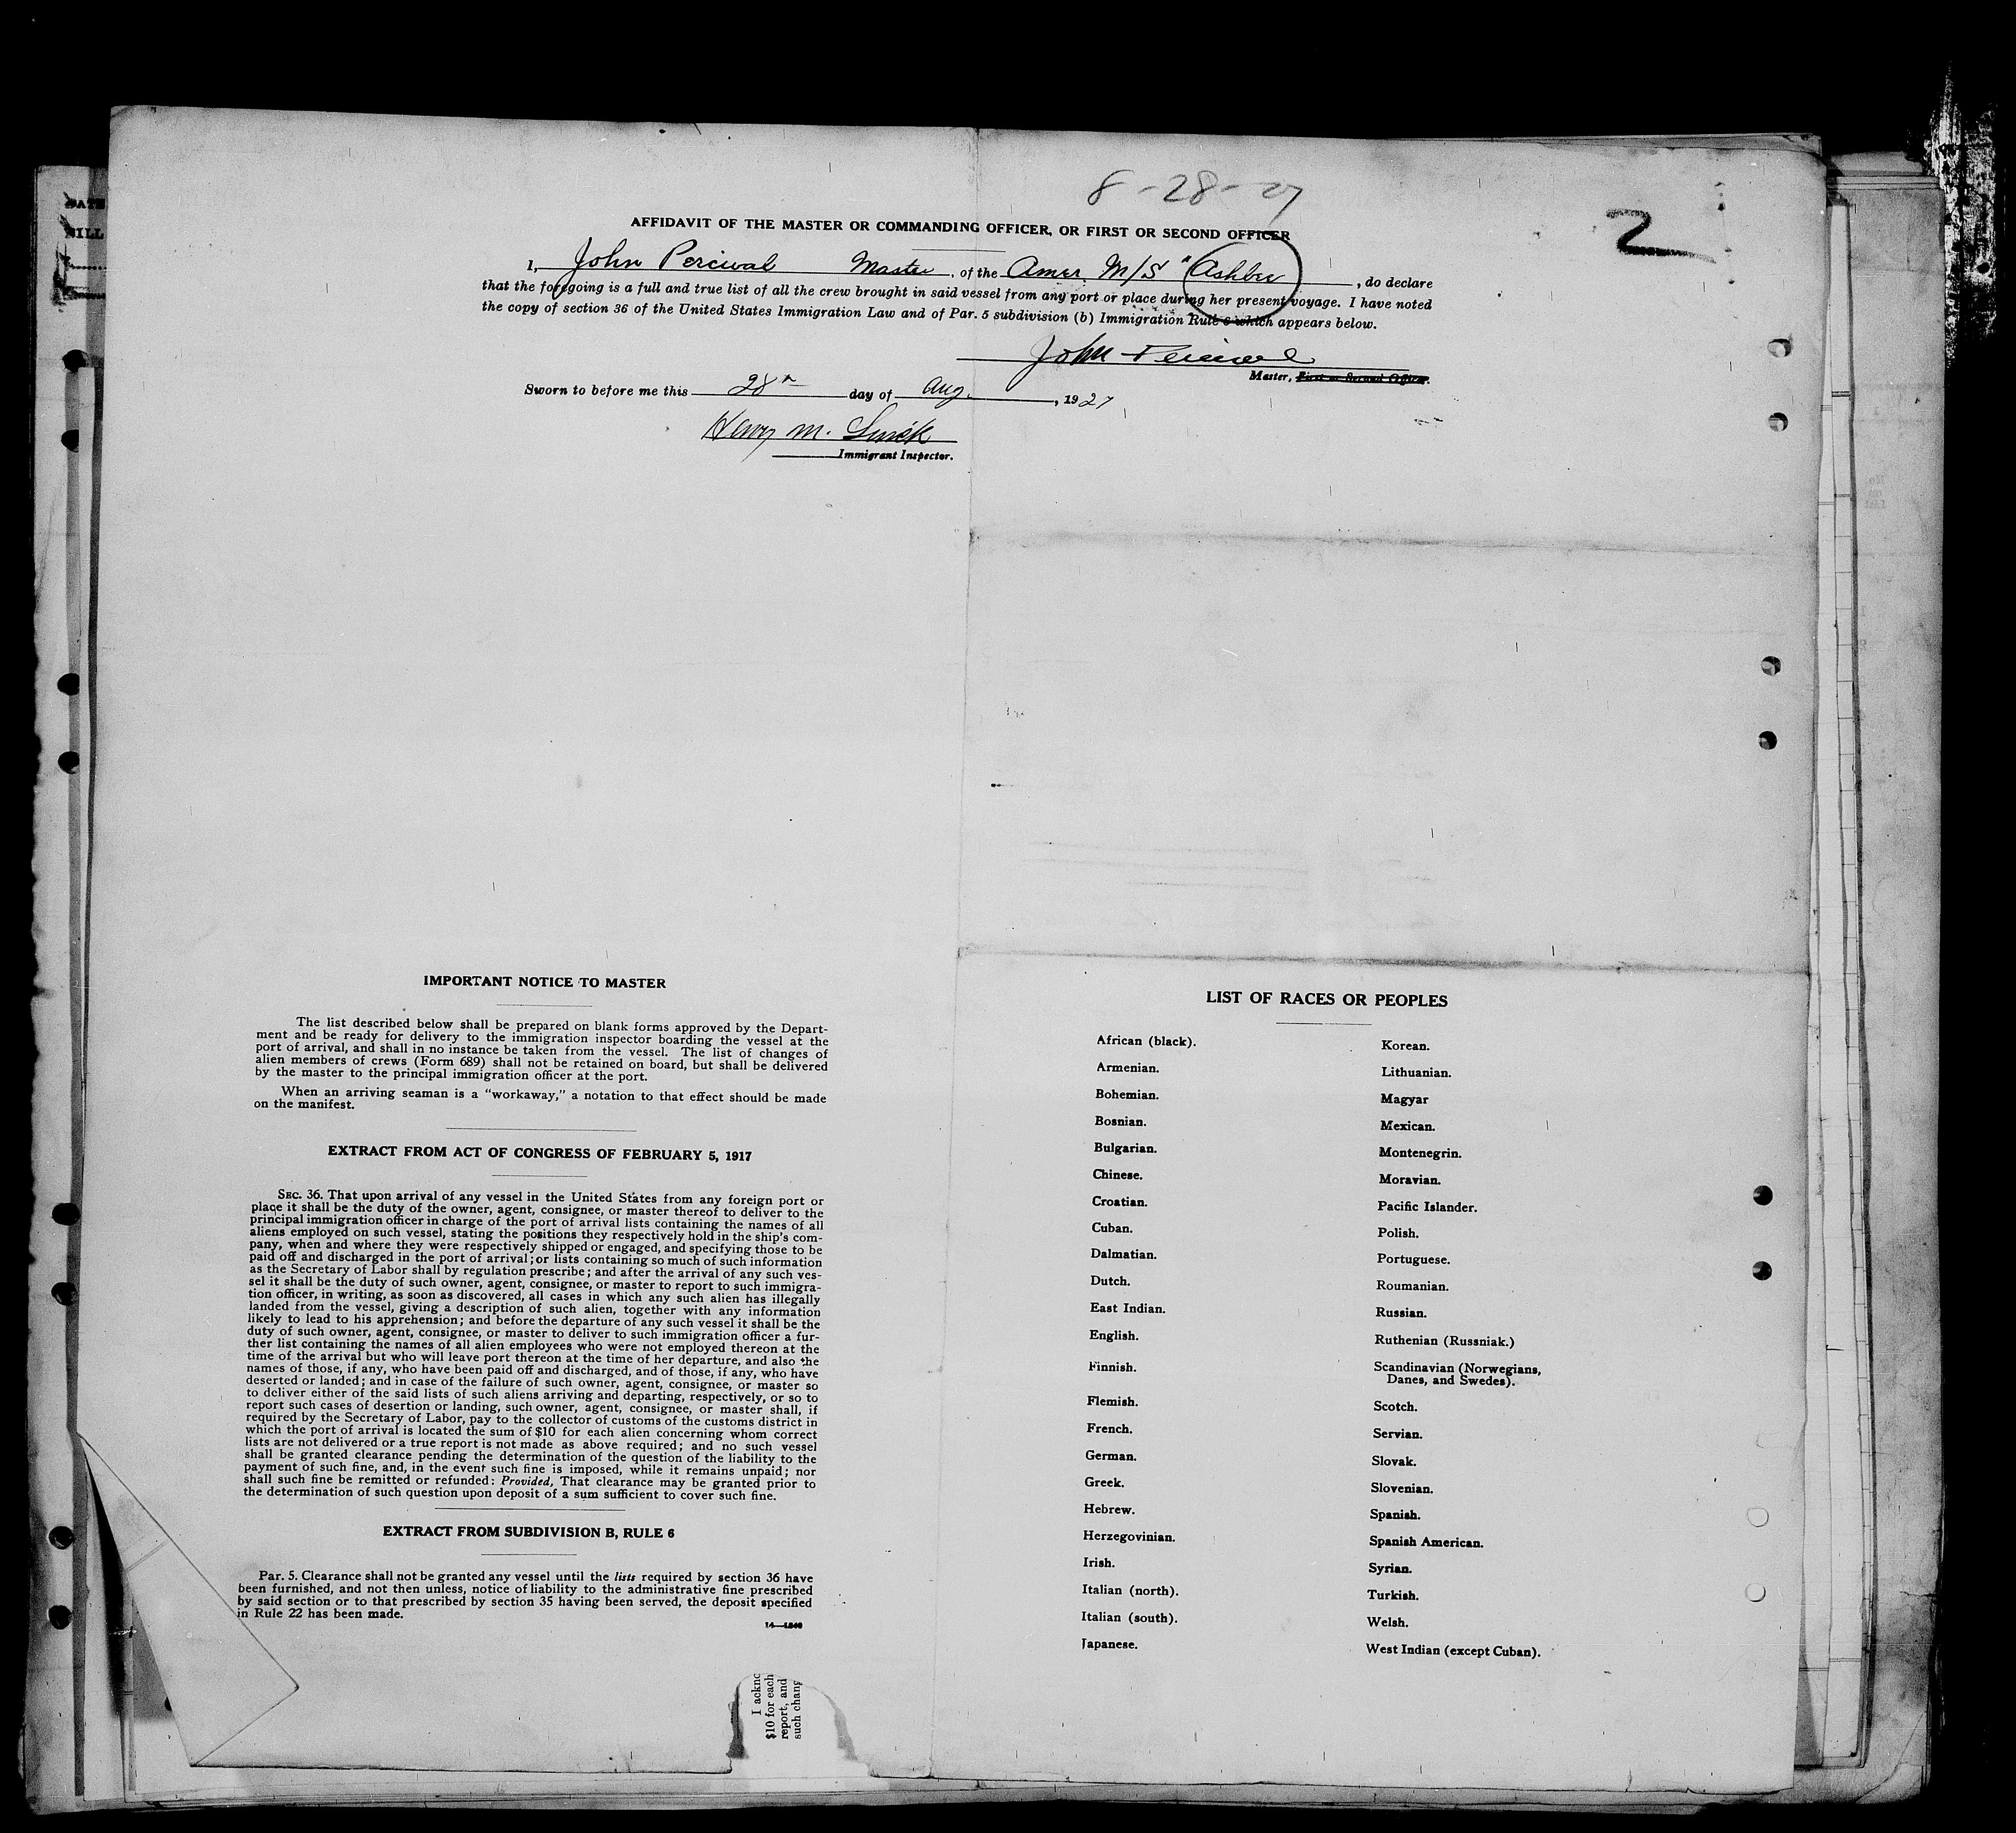 8-28-27
2
AFFIDAVIT OF THE MASTER OR COMMANDING OFFICER, OR FIRST OR SECOND OFFICER
I, John Percival Master, of the Amer. M/S "Ashbee , do declare
that the foregoing is a full and true list of all the crew brought in said vessel from any port or place during her present voyage. I have noted
the copy of section 36 of the United States Immigration Law and of Par. 5 subdivision (b) Immigration Rule 6 which appears below.
John Percival
Master, First or Second Officer.
Sworn to before me this 28th day of Aug. , 1927
Henry M.
Immigrant Inspector.
IMPORTANT NOTICE TO MASTER
The list described below shall be prepared on blank forms approved by the Depart-
ment and be ready for delivery to the immigration inspector boarding the vessel at the
port of arrival, and shall in no instance be taken from the vessel. The list of changes of
alien members of crews (Form 689) shall not be retained on board, but shall be delivered
by the master to the principal immigration officer at the port.
When an arriving seaman is a "workaway," a notation to that effect should be made
on the manifest.
EXTRACT FROM ACT OF CONGRESS OF FEBRUARY 5, 1917
SEC. 36. That upon arrival of any vessel in the United States from any foreign port or
place it shall be the duty of the owner, agent, consignee, or master thereof to deliver to the
principal immigration officer in charge of the port of arrival lists containing the names of all
aliens employed on such vessel, stating the positions they respectively hold in the ship's com-
pany, when and where they were respectively shipped or engaged, and specifying those to be
paid off and discharged in the port of arrival; or lists containing so much of such information
as the Secretary of Labor shall by regulation prescribe; and after the arrival of any such ves-
sel it shall be the duty of such owner, agent, consignee, or master to report to such immigra-
tion officer, in writing, as soon as discovered, all cases in which any such alien has illegally
landed from the vessel, giving a description of such alien, together with any information
likely to lead to his apprehension; and before the departure of any such vessel it shall be the
duty of such owner, agent, consignee, or master to deliver to such immigration officer a fur-
ther list containing the names of all alien employees who were not employed thereon at the
time of the arrival but who will leave port thereon at the time of her departure, and also the
names of those, if any, who have been paid off and discharged, and of those, if any, who have
deserted or landed; and in case of the failure of such owner, agent, consignee, or master so
to deliver either of the said lists of such aliens arriving and departing, respectively, or so to
report such cases of desertion or landing, such owner, agent, consignee, or master shall, if
required by the Secretary of Labor, pay to the collector of customs of the customs district in
which the port of arrival is located the sum of $10 for each alien concerning whom correct
lists are not delivered or a true report is not made as above required; and no such vessel
shall be granted clearance pending the determination of the question of the liability to the
payment of such fine, and, in the event such fine is imposed, while it remains unpaid; nor
shall such fine be remitted or refunded: Provided, That clearance may be granted prior to
the determination of such question upon deposit of a sum sufficient to cover such fine.
EXTRACT FROM SUBDIVISION B, RULE 6
Par. 5. Clearance shall not be granted any vessel until the lists required by section 36 have
been furnished, and not then unless, notice of liability to the administrative fine prescribed
by said section or to that prescribed by section 35 having been served, the deposit specified
in Rule 22 has been made.
LIST OF RACES OR PEOPLES
African (black).
Armenian.
Bohemian.
Bosnian.
Bulgarian.
Chinese.
Croatian.
Cuban.
Dalmatian.
Dutch.
East Indian.
English.
Finnish.
Flemish.
French.
German.
Greek.
Hebrew.
Herzegovinian.
Irish.
Italian (north).
Italian (south).
Japanese.
Korean.
Lithuanian.
Magyar
Mexican.
Montenegrin.
Moravian.
Pacific Islander.
Polish.
Portuguese.
Roumanian.
Russian.
Ruthenian (Russniak.)
Scandinavian (Norwegians,
Danes, and Swedes).
Scotch.
Servian.
Slovak.
Slovenian.
Spanish.
Spanish American.
Syrian.
Turkish.
Welsh.
West Indian (except Cuban).
I acknc
$10 for each
report, and
such chang